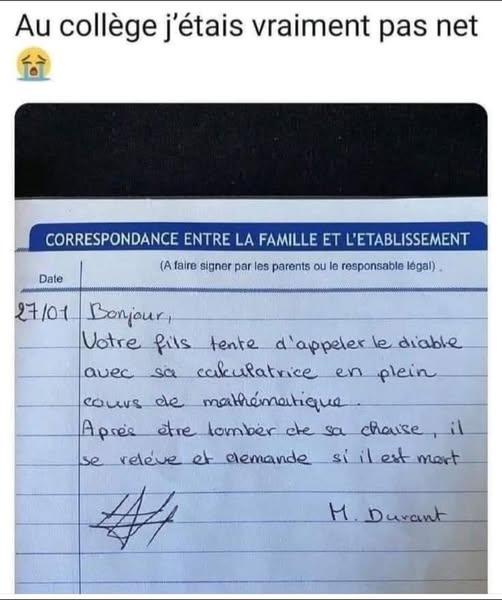 Au collège j'étais vraiment pas net
😭
CORRESPONDANCE ENTRE LA FAMILLE ET L'ETABLISSEMENT
(A faire signer par les parents ou le responsable légal).
Date
27/01 Bonjour,
Votre fils tente d'appeler le diable
avec sa calculatrice en plein
cours de mathématique.
Après être tomber de sa chaise, il
se relève et demande si il est mort
M. Durant